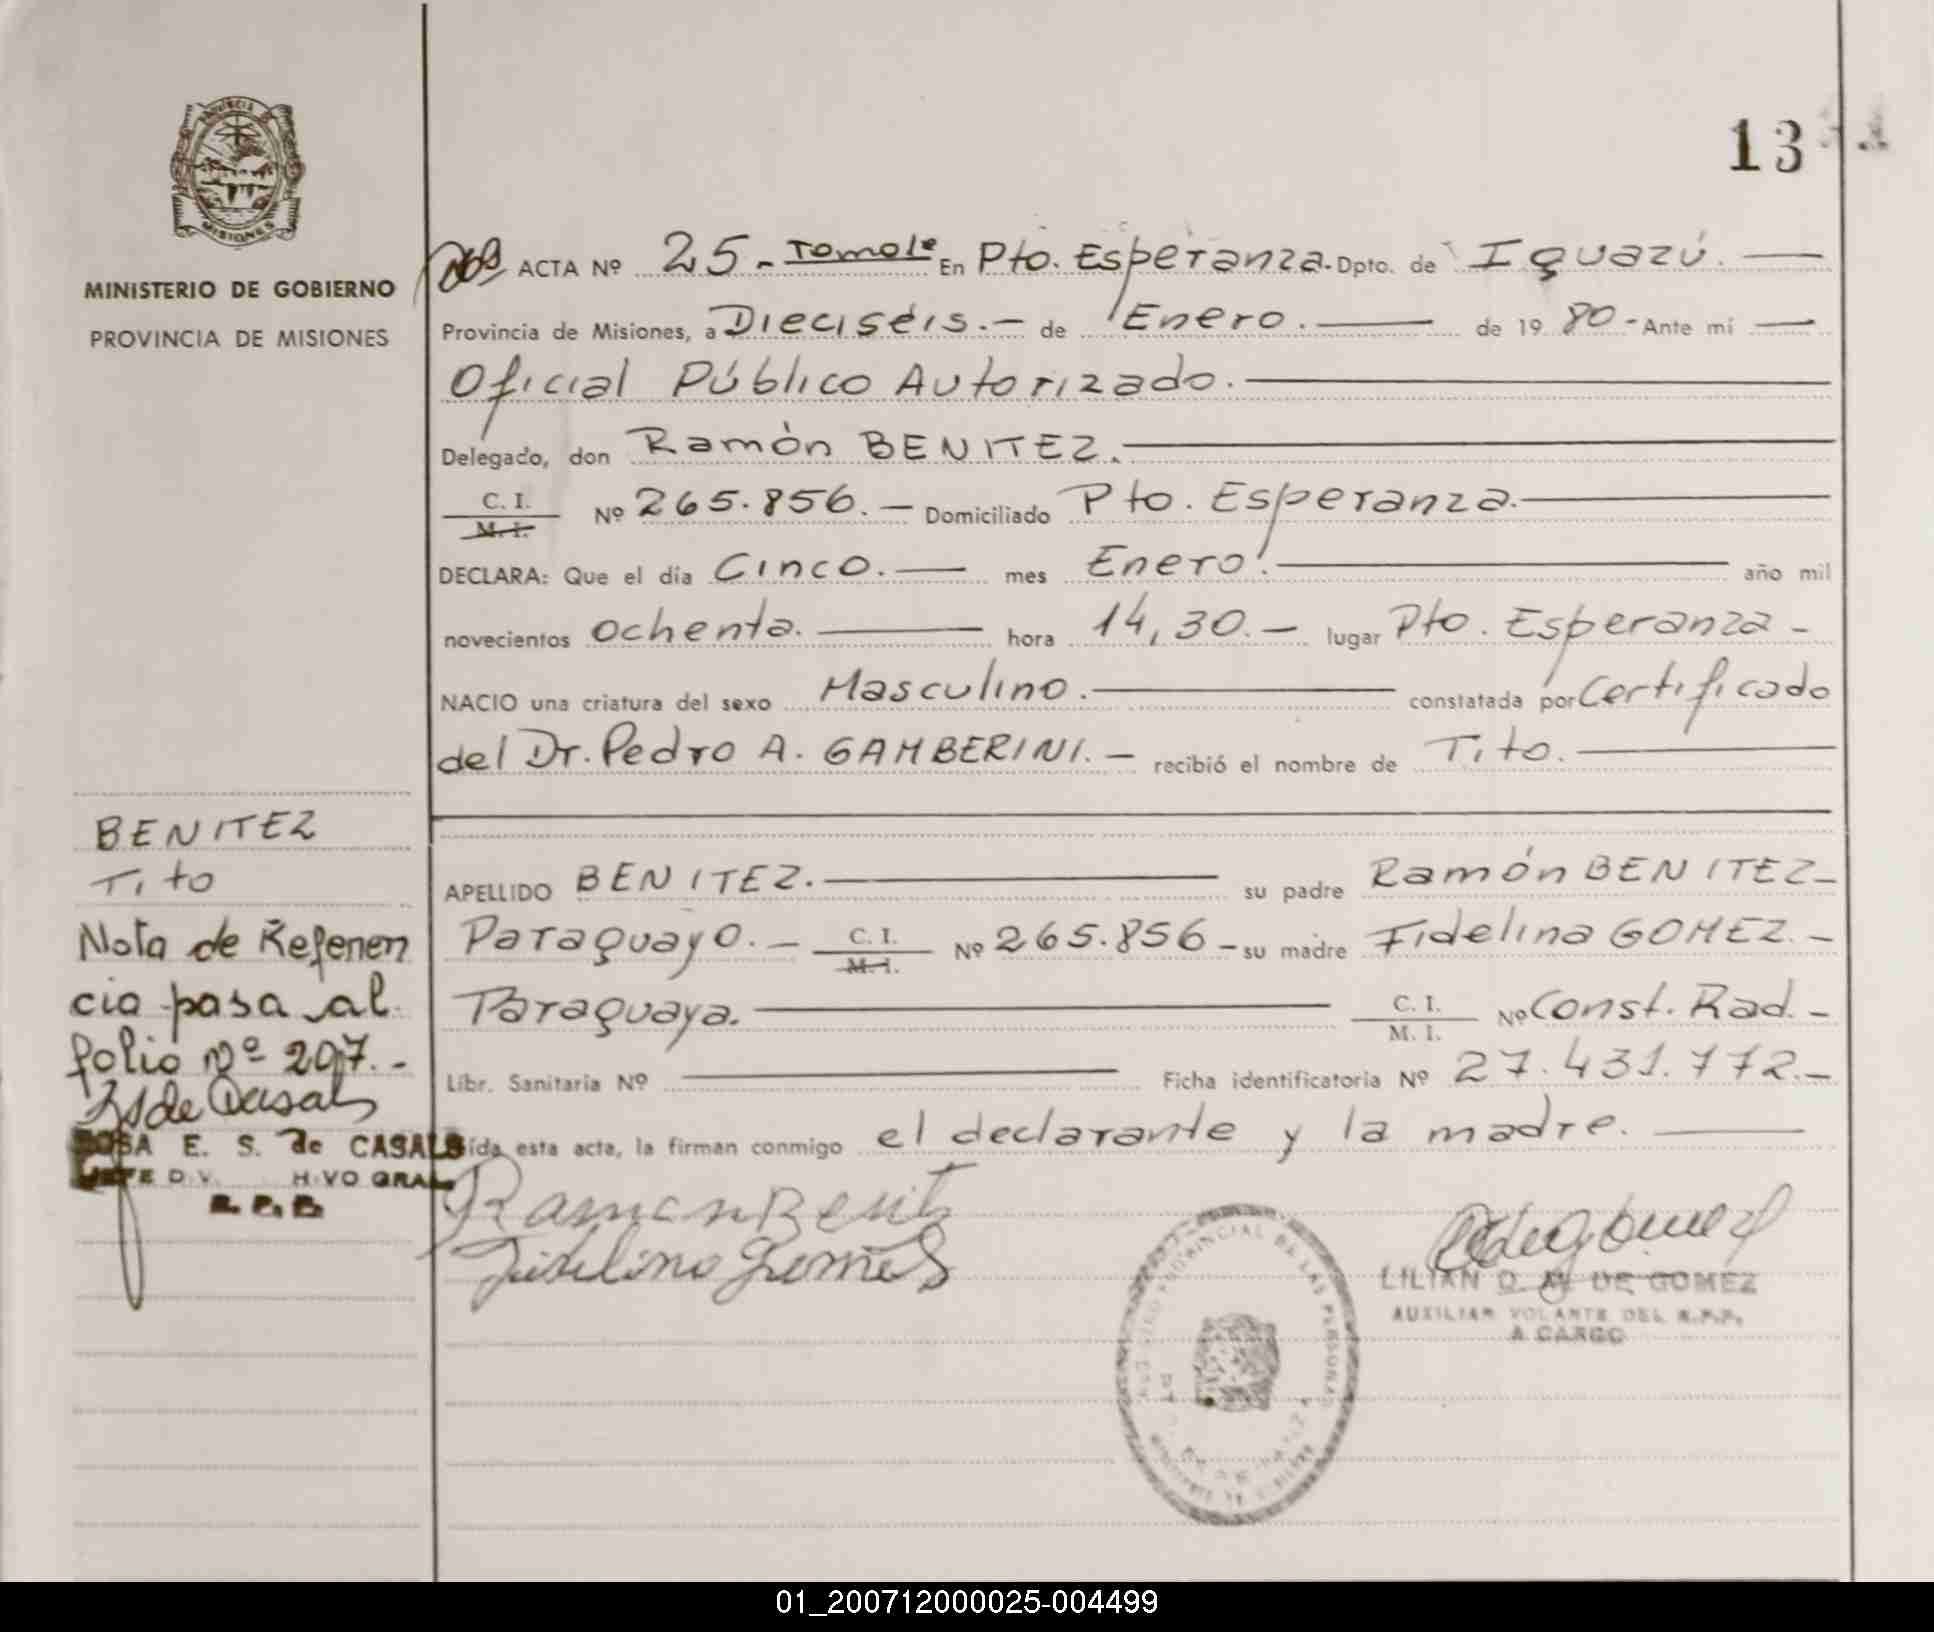 PROVINCIA DE
MISIONES
MINISTERIO DE GOBIERNO
PROVINCIA DE MISIONES
13
ACTA Nº 25.- Tomo 1º En Pto. Esperanza. Dpto. de Iguazú.
Provincia de Misiones, a Dieciséis.- de Enero. de 19 80.- Ante mí
Oficial Público Autorizado.
Delegado, don Ramón BENITEZ.
C. I.
M. I. Nº 265.856.- Domiciliado Pto. Esperanza.
DECLARA: Que el día Cinco. mes Enero. año mil
novecientos ochenta. hora 14,30.- lugar Pto. Esperanza-
NACIO una criatura del sexo Masculino. constatada por Certificado
del Dr. Pedro A. GAMBERINI.- recibió el nombre de Tito.
BENITEZ
Tito
Nota de Referen
cia pasa al
folio Nº 207.-
ROSA E. S. de CASALS
JEFE DIV. H.VO GRAL
R. P. P.
APELLIDO BENITEZ. su padre Ramón BENITEZ-
Paraguayo.- C. I.
M. I. Nº 265.856- su madre Fidelina GOMEZ.-
Paraguaya. C. I.
M. I. Nº Const. Rad.-
Libr. Sanitaria Nº Ficha identificatoria Nº 27.431.772.-
ída esta acta, la firman conmigo el declarante y la madre.
Ramon Benit
Fidelino Gomes
LILIAN O. M. DE GOMEZ
AUXILIAR VOLANTE DEL R.P.P.
A CARGO
PROVINCIAL DE LAS PERSONAS
01_200712000025-004499